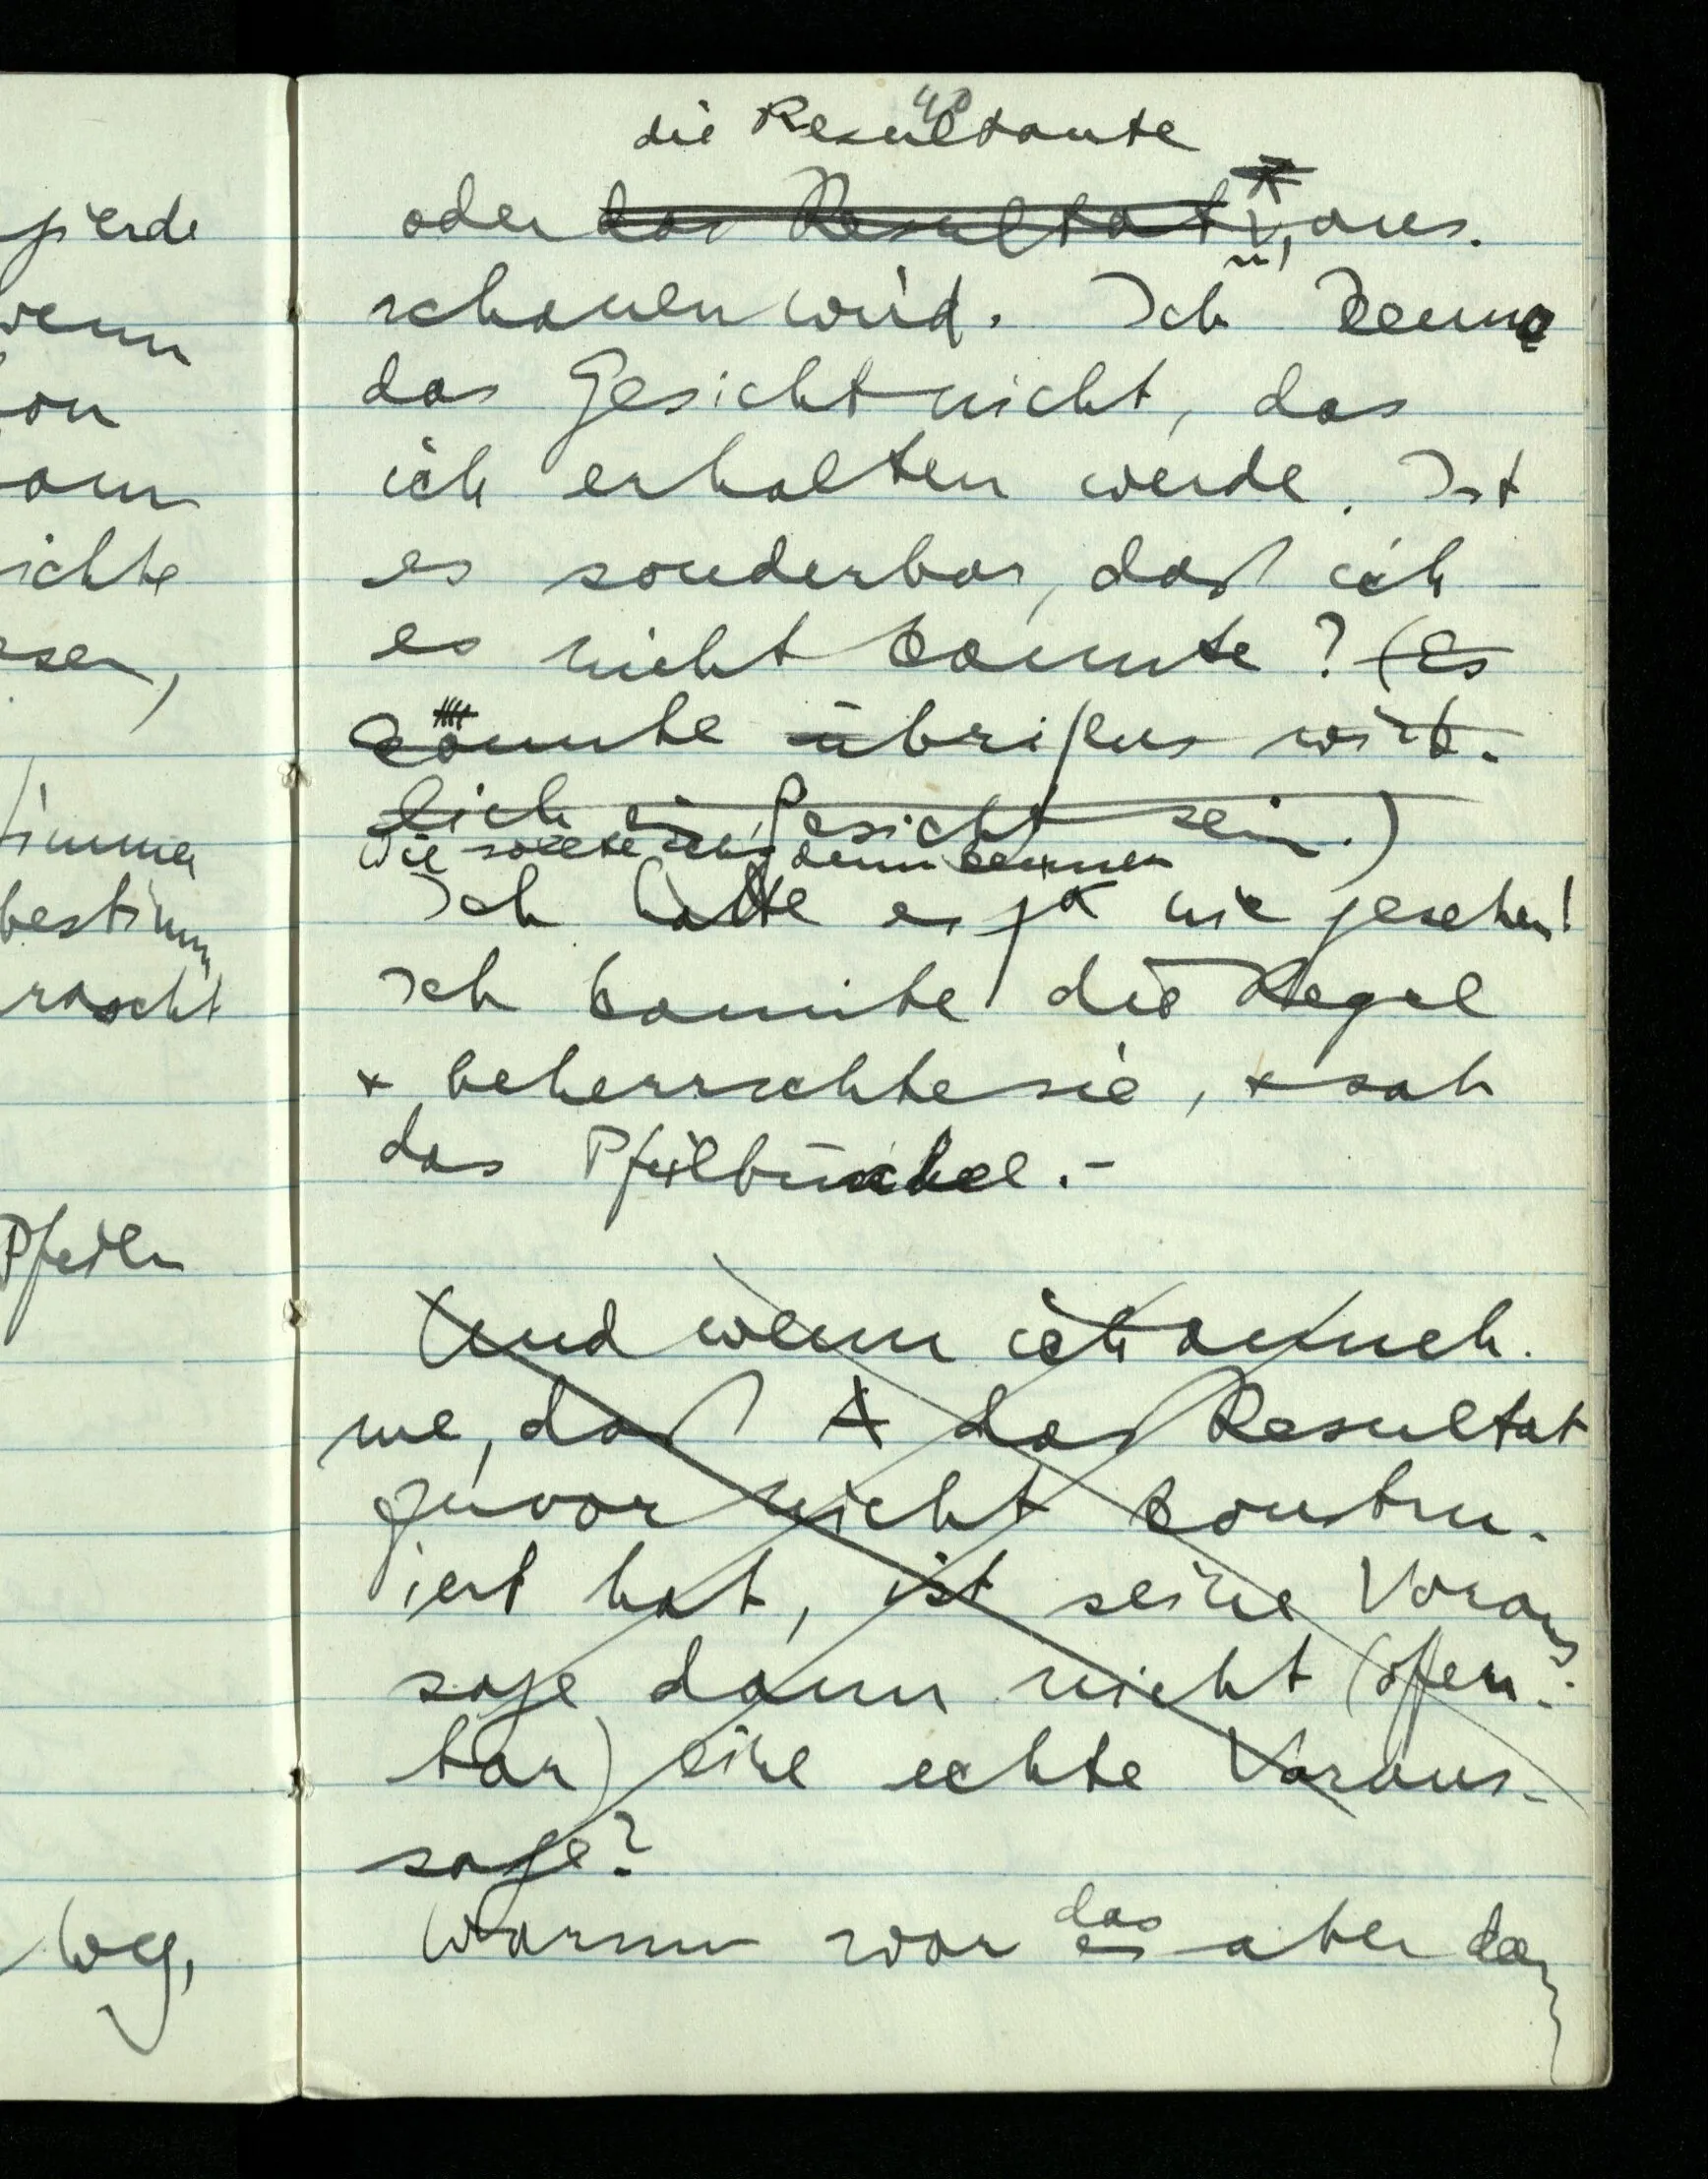 gierde
wenn
am
ichte
sen,
timmen
bestimm
rascht
Pfeilen
weg,
40
die Resultante
oder das Resultat, aus-
schauen wird. Ich kenne
das Gesicht nicht, das
ich erhalten werde. Ist
es sonderbar, daß ich
es nicht kannte? (Es
könnte übrigens wirk-
lich ein Gesicht sein.)
Wie sollte ich's denn kennen
Ich hatte es ja nie gesehen!
Ich kannte die Regel
+ beherrschte sie, + sah
das Pfeilbüschel.–
Und wenn ich anneh-
me, daß A das Resultat
zuvor nicht konstru-
iert hat, ist seine Voraus
sage dann nicht (offen-
bar) eine echte Voraus-
sage?
das
Warum war es aber dann